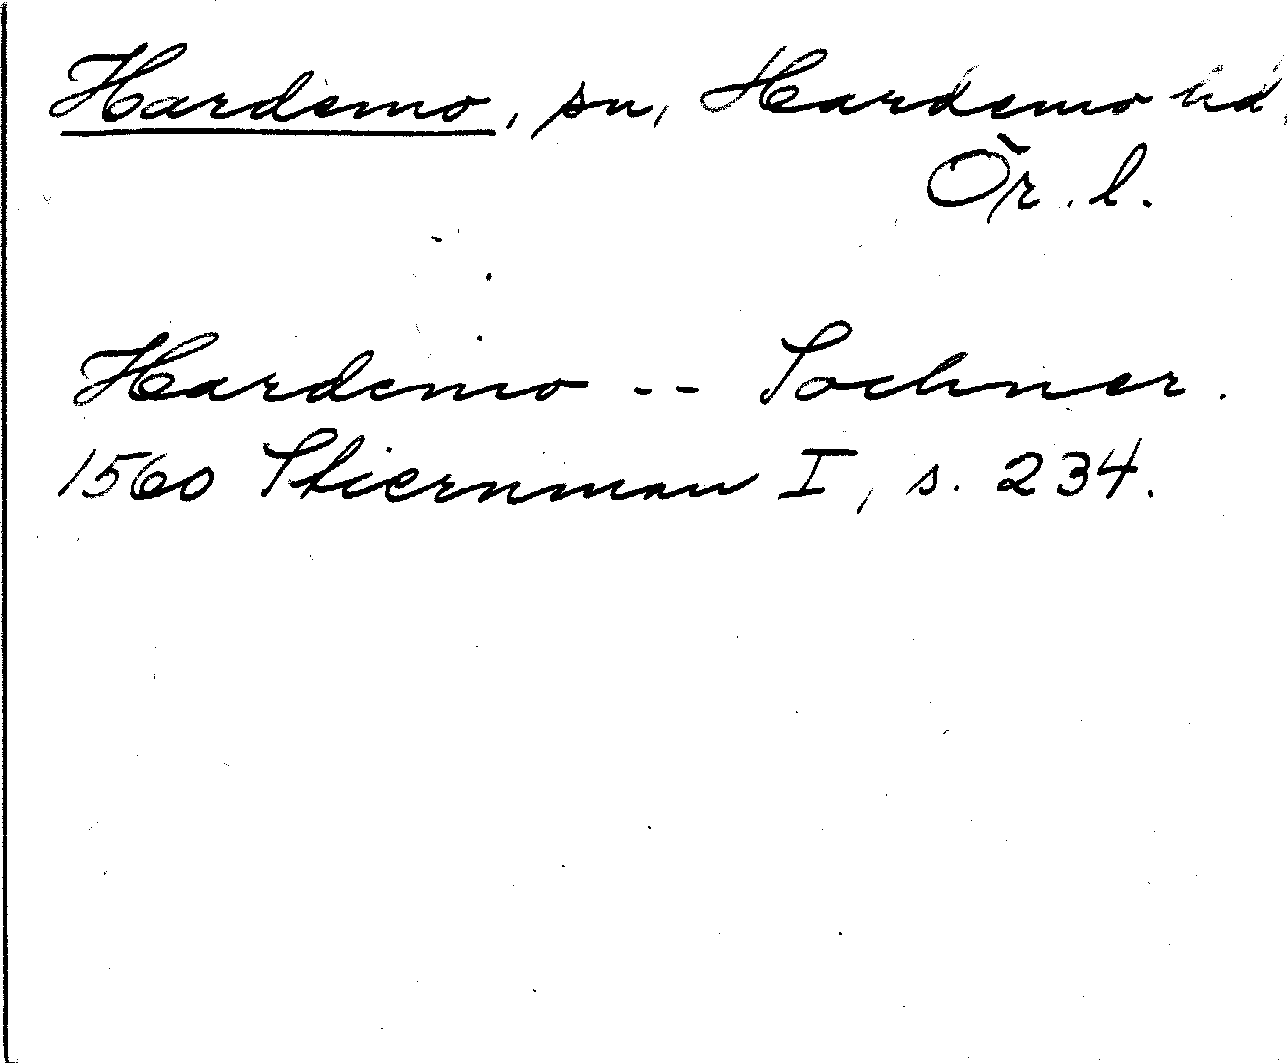 Hardemo, sn, Hardemo hd,
Ör. l.
Hardemo -- Sochner.
1560 Stiernman I, s. 234.